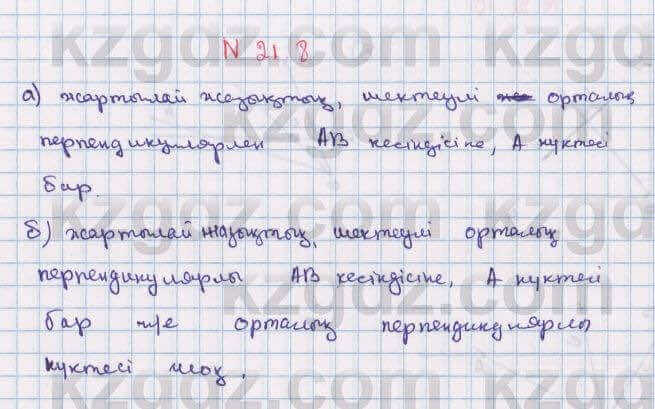 kzgdz.com
N 21 8
а) жартылай жазықтық, шектеулі орталық
перпендикулярлен АВ кесіндісіне, А нүктесі
бар.
б) жартылай жазықтық, шектеулі орталық
перпендикулярлы АВ кесіндісіне, А нүктесі
бар және орталық перпендикулярлы
нүктесі жоқ.